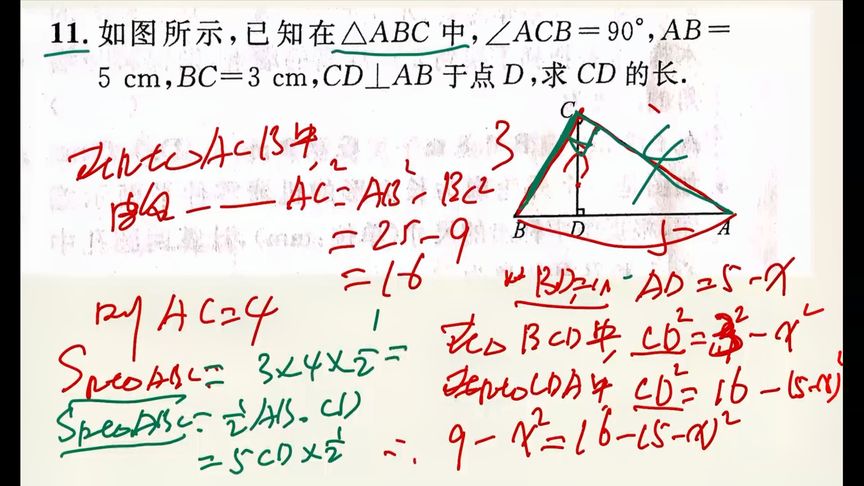 11. 如图所示,已知在△ABC中,∠ACB=90°,AB=
5 cm,BC=3 cm,CD⊥AB于点D,求CD的长.
C
3
4
B D A
5
在Rt△ACB中
由勾 —— AC²=AB²-BC²
=25-9
=16
即AC=4
S Rt△ABC= 3×4×1/2=
S Rt△ABC= 1/2 AB·CD
=5CD×1/2
BD=x AD=5-x
在Rt△BCD中, CD²=3²-x²
在Rt△CDA中 CD²=16-(5-x)²
∴ 9-x²=16-(5-x)²